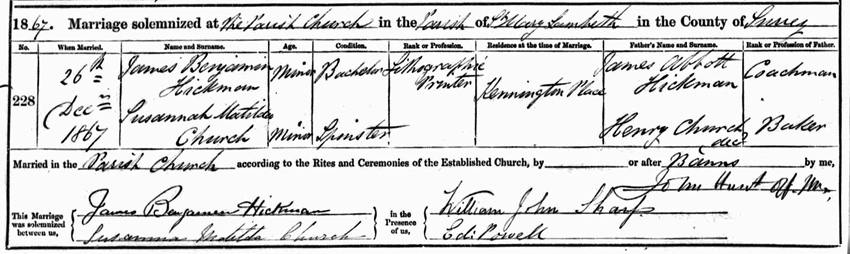 1867. Marriage solemnized at the Parish Church in the Parish of St Mary Lambeth in the County of Surrey
No. When Married. Name and Surname. Age. Condition. Rank or Profession. Residence at the time of Marriage. Father's Name and Surname. Rank or Profession of Father.
228 26th Decr 1867 James Benjamin Hickman Minor Bachelor Lithographic Printer Kennington Place James Abbott Hickman Coachman
Susannah Matilda Church Minor Spinster Henry Church decd Baker
Married in the Parish Church according to the Rites and Ceremonies of the Established Church, by or after Banns by me,
John Hunt
This Marriage was solemnized between us, James Benjamin Hickman in the Presence of us, William John Sharp
Susanna Matilda Church Ed: Powell